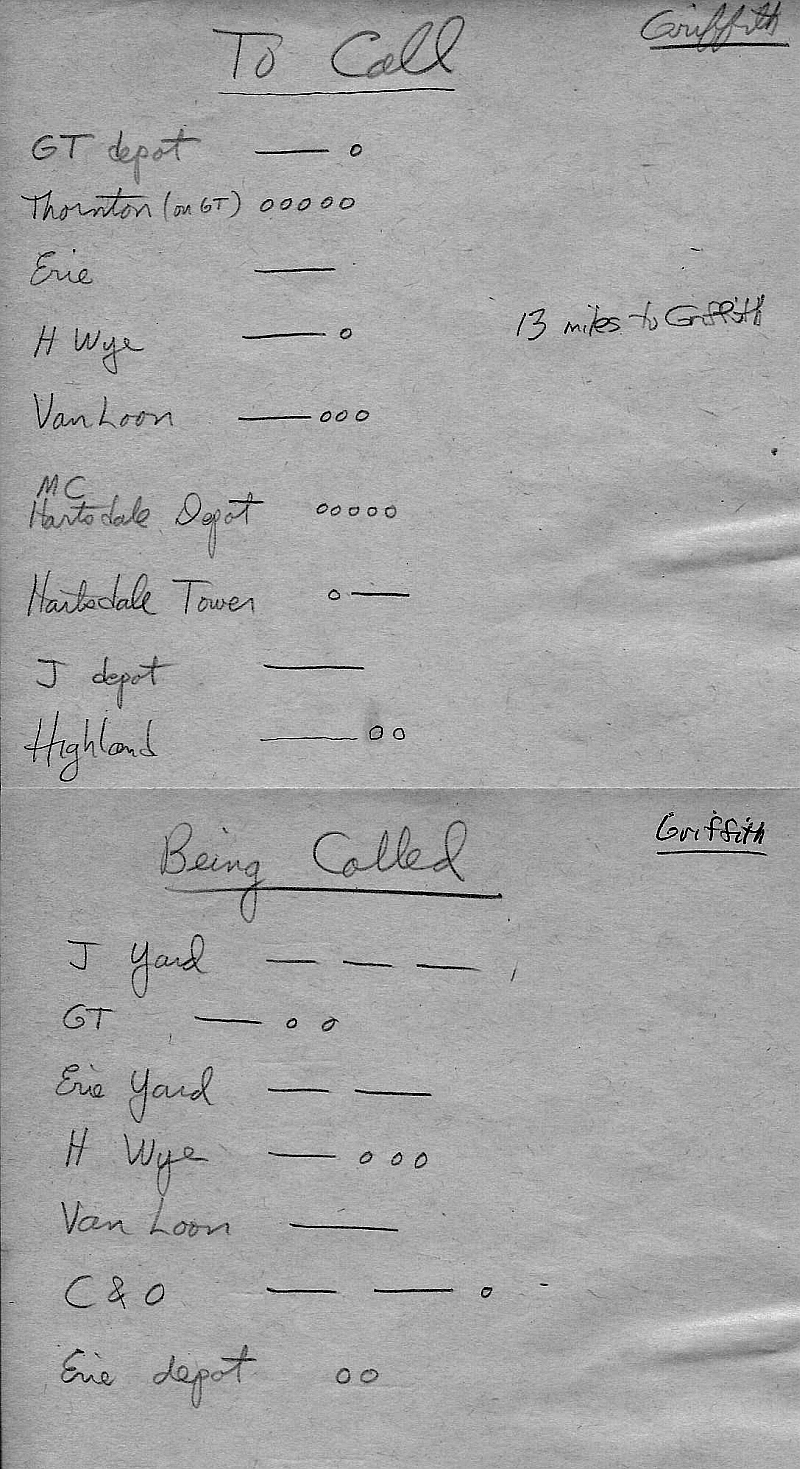 Griffith
To Call
GT depot — o
Thornton (on GT) ooooo
Erie —
H Wye — o
13 miles to Griffith
Van Loon — ooo
MC
Hartsdale Depot ooooo
Hartsdale Tower o —
J depot —
Highland — oo
Griffith
Being Called
J Yard — — —
GT — o o
Erie Yard — —
H Wye — o o o
Van Loon —
C & O — — o
Erie depot oo